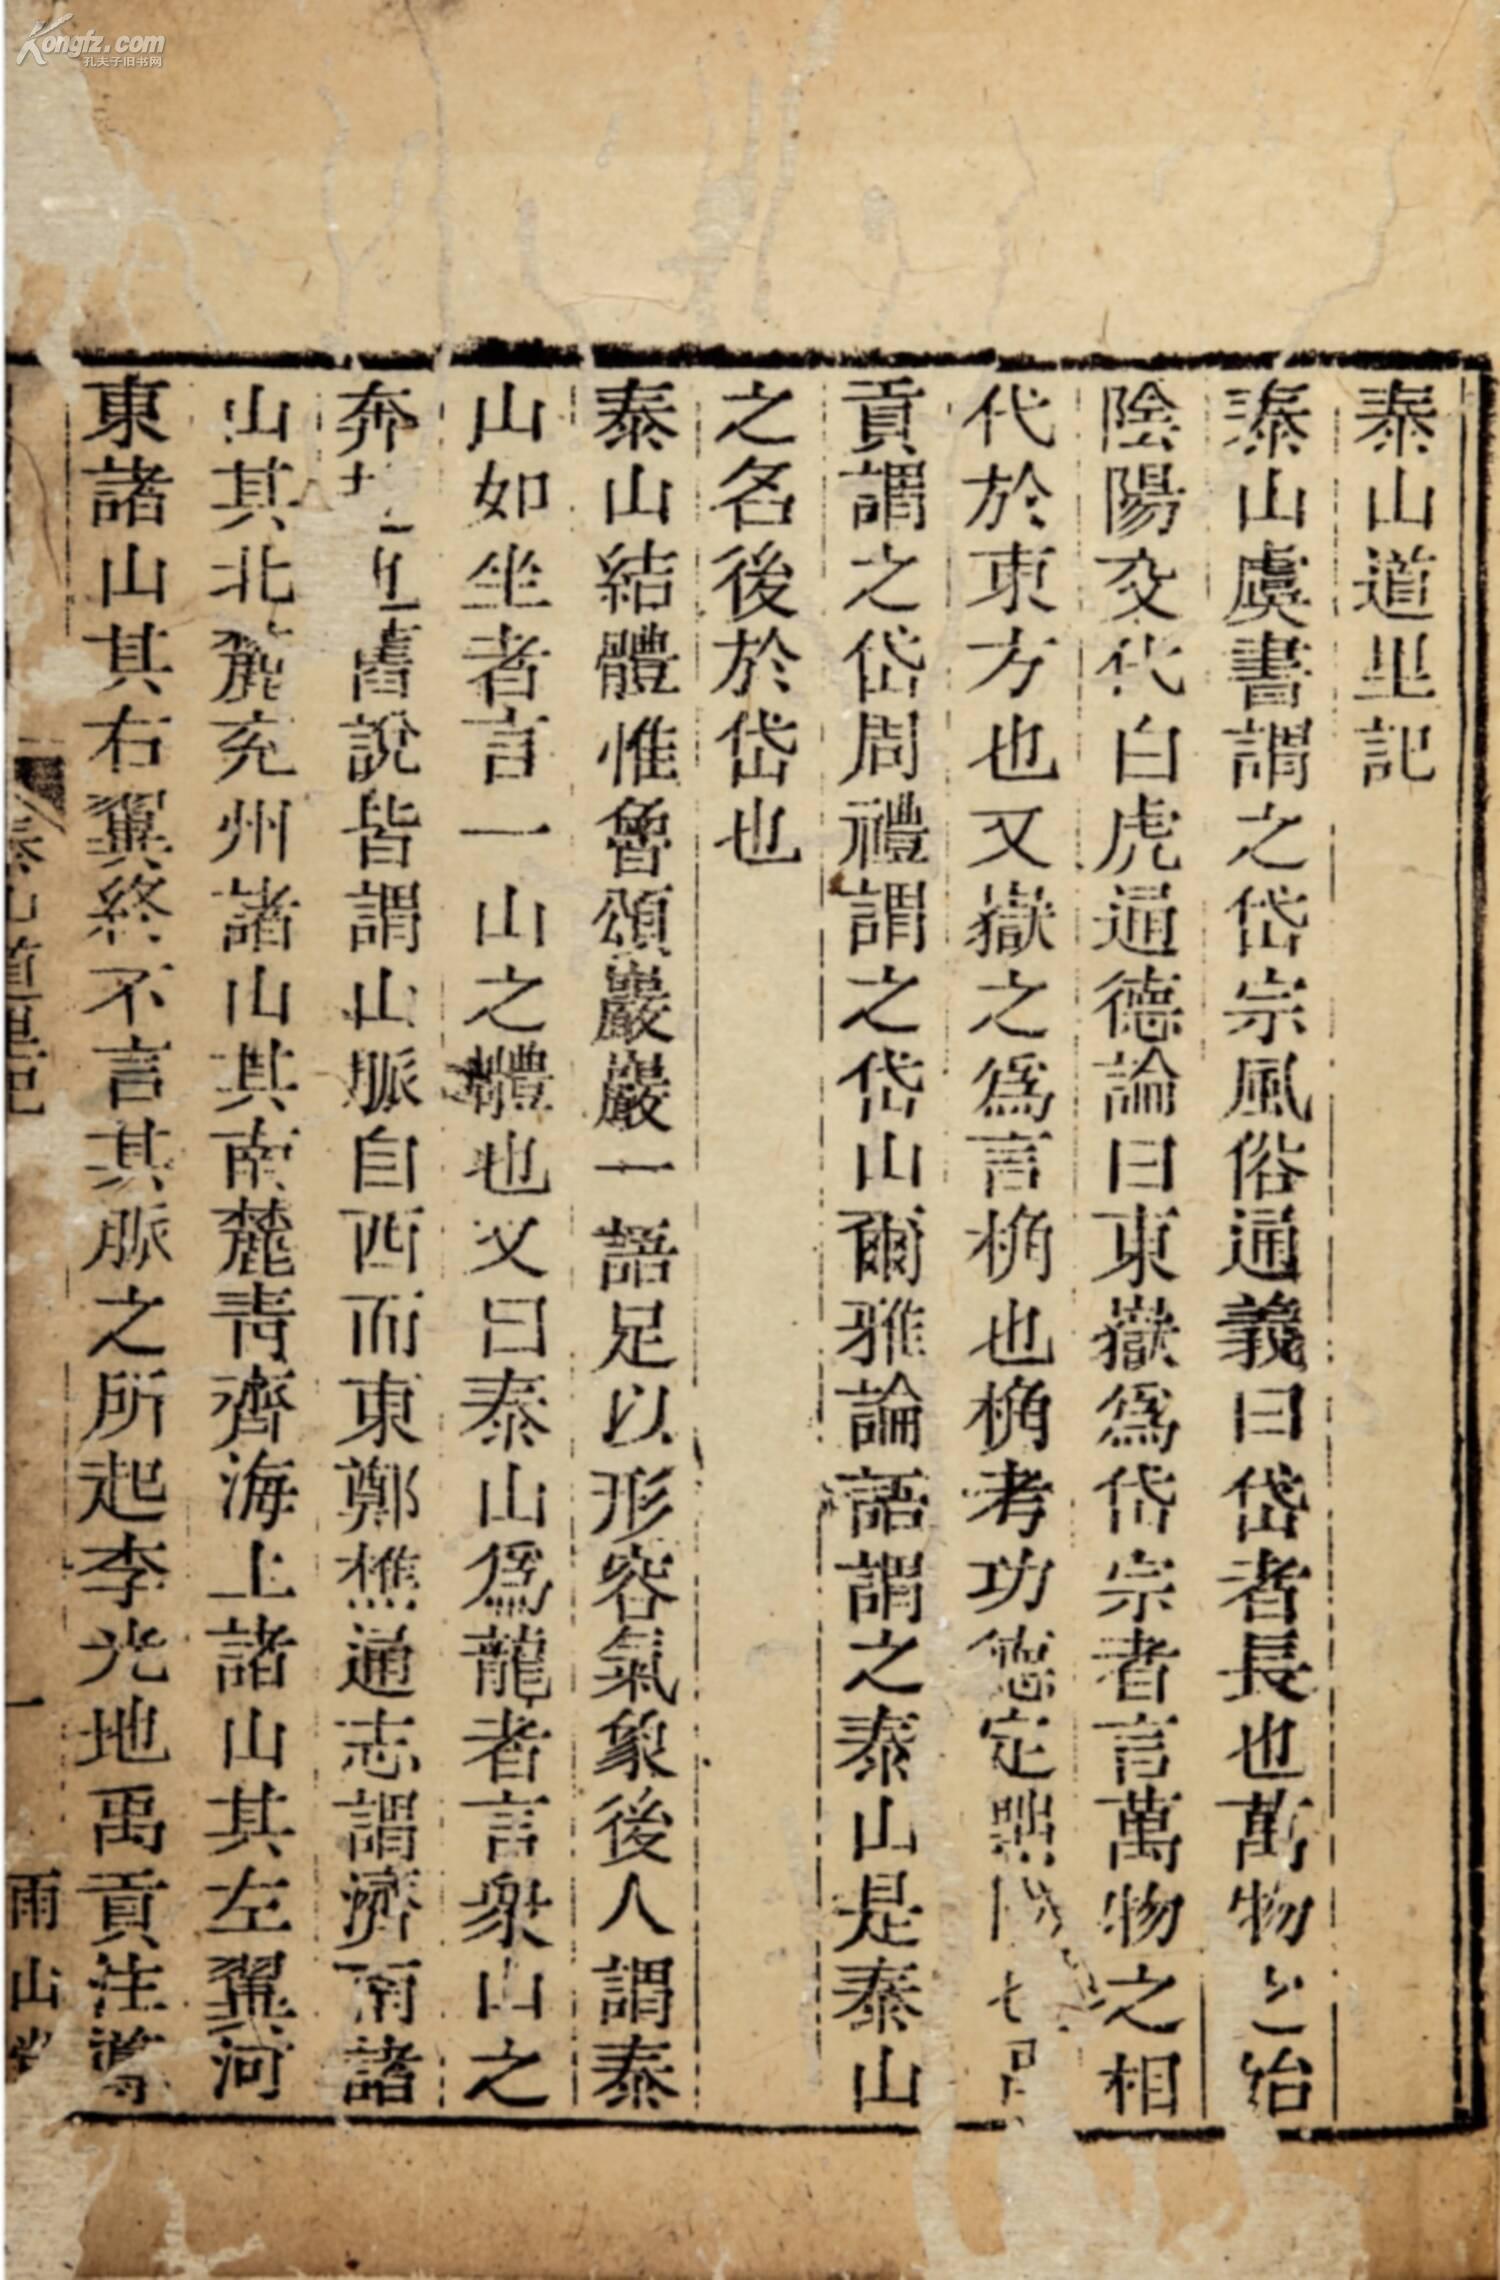 泰山道里記
泰山虞書謂之岱宗風俗通義曰岱者長也萬物之始
陰陽交代白虎通德論曰東嶽爲岱宗者言萬物之相
代於東方也又嶽之爲言桷也桷考功德定黜
貢謂之岱周禮謂之岱山爾雅論語謂之泰山是泰山
之名後於岱也
泰山結體惟魯頌巖巖一語足以形容氣象後人謂泰
山如坐者言一山之體也又曰泰山爲龍者言衆山之
奔 舊說皆謂山脈自西而東鄭樵通志謂濟南諸
山其北麓兖州諸山其南麓青齊海上諸山其左翼河
東諸山其右翼終不言其脈之所起李光地禹貢注
泰山道里記
一
雨山堂
Kongfz.com
孔夫子旧书网